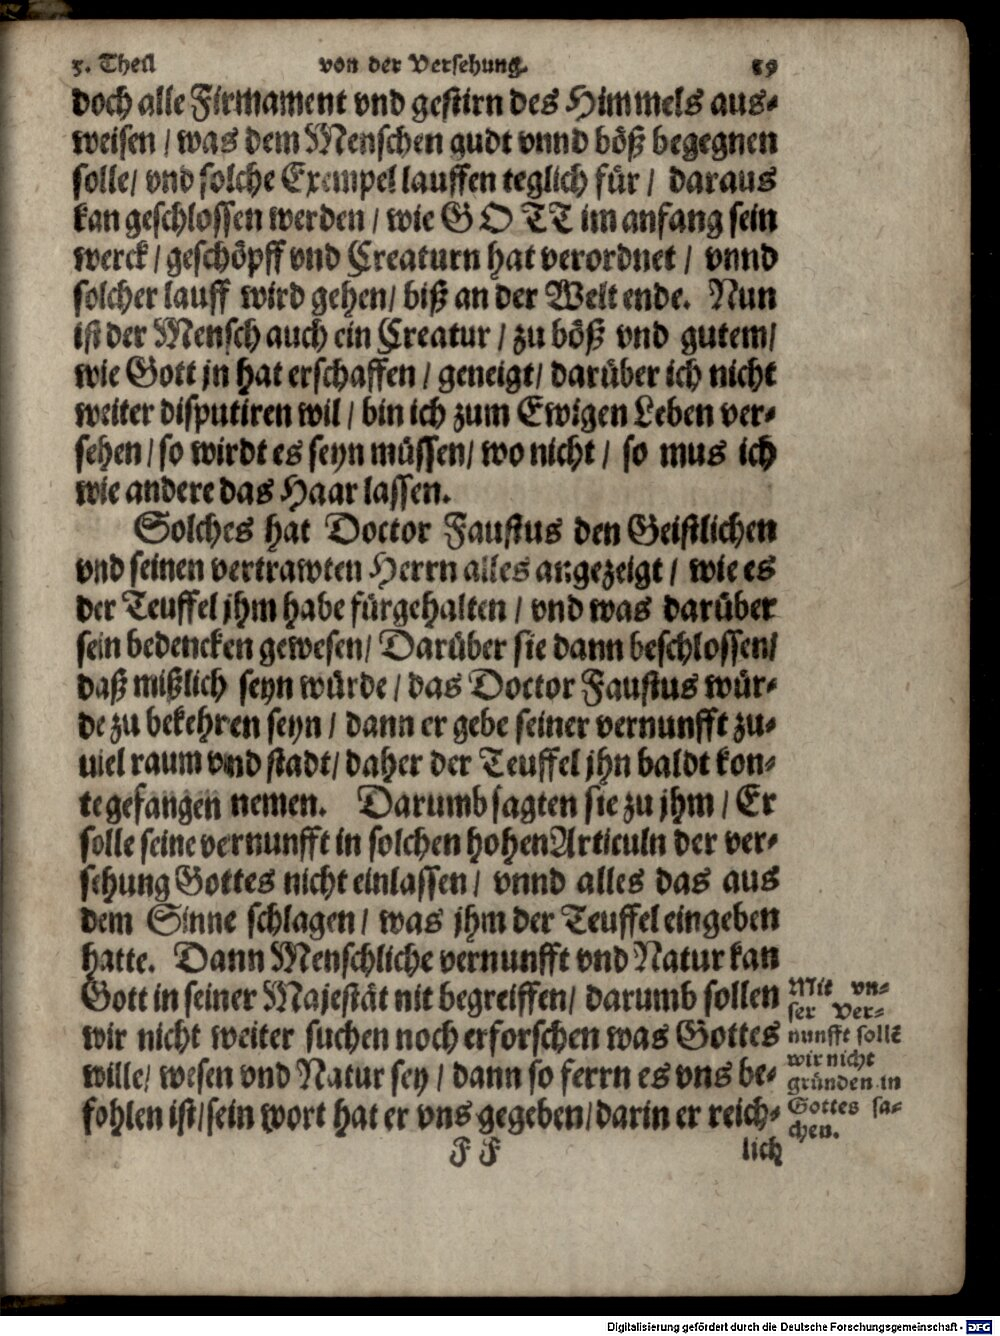 3. Theil von der Versehung. 59
doch alle Firmament vnd gestirn des Himmels aus-
weisen / was dem Menschen gudt vnnd böß begegnen
solle / vnd solche Exempel lauffen teglich für / daraus
kan geschlossen werden / wie GOTT im anfang sein
werck / geschöpff vnd Creaturn hat verordnet / vnnd
solcher lauff wird gehen / biß an der Welt ende. Nun
ist der Mensch auch ein Creatur / zu böß vnd gutem /
wie Gott jn hat erschaffen / geneigt / darüber ich nicht
weiter disputiren wil / bin ich zum Ewigen Leben ver-
sehen / so wirdt es seyn müssen / wo nicht / so mus ich
wie andere das Haar lassen.
Solches hat Doctor Faustus den Geistlichen
vnd seinen vertrawten Herrn alles angezeigt / wie es
der Teuffel jhm habe fürgehalten / vnd was darüber
sein bedencken gewesen / Darüber sie dann beschlossen /
daß mißlich seyn würde / das Doctor Faustus wür-
de zu bekehren seyn / dann er gebe seiner vernunfft zu-
uiel raum vnd stadt / daher der Teuffel jhn baldt kon-
te gefangen nemen. Darumb sagten sie zu jhm / Er
solle seine vernunfft in solchen hohen Articuln der ver-
sehung Gottes nicht einlassen / vnnd alles das aus
dem Sinne schlagen / was jhm der Teuffel eingeben
hatte. Dann Menschliche vernunfft vnd Natur kan
Gott in seiner Majestät nit begreiffen / darumb sollen
wir nicht weiter suchen noch erforschen was Gottes
wille / wesen vnd Natur sey / dann so ferrn es vns be-
fohlen ist / sein wort hat er vns gegeben / darin er reich-
Mit vn-
ser Ver-
nunfft sollē
wir nicht
gründen in
Gottes sa-
chen.
F F lich
Digitalisierung gefördert durch die Deutsche Forschungsgemeinschaft - DFG